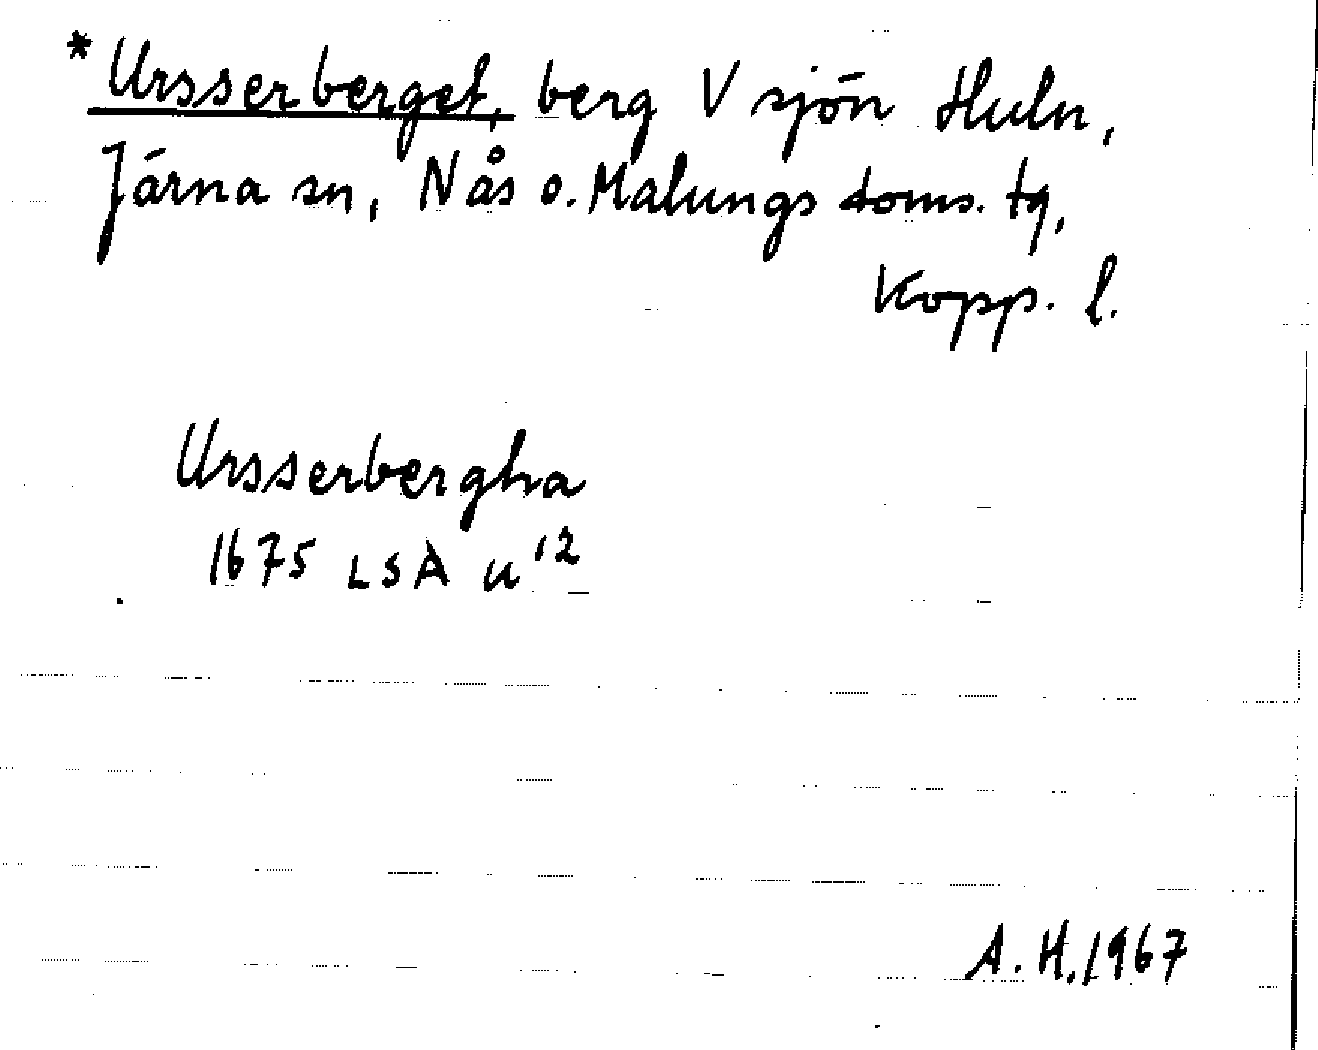 *Ursserberget, berg V sjön Huln,
Järna sn, Nås o. Malungs doms. tg,
Kopp. l.
Ursserbergha
1675 LSA u'2
A. H. 1967